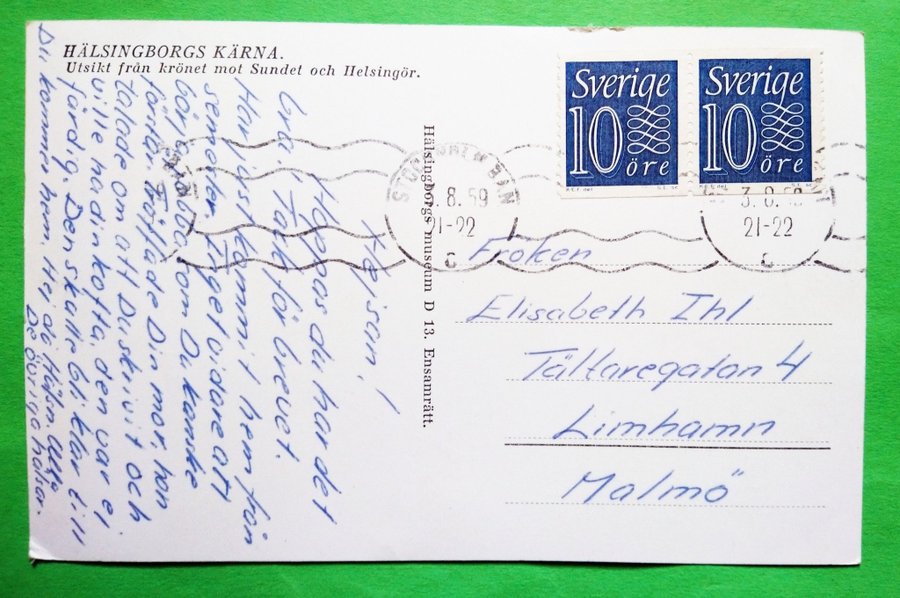 HÄLSINGBORGS KÄRNA.
Utsikt från krönet mot Sundet och Helsingör.
Sverige
10 öre
Sverige
10 öre
STOCKHOLM BAN
3.8.59
21-22
C
21-22
C
Hälsingborgs museum D 13. Ensamrätt.
Hejsan!
Hoppas du har det
bra. Tack för brevet.
Har just kommit hem från
semester. Inget vidare att
göra. Ebba som Du kanske
förstår träffade Din mor, hon
talade om att Du skrivit och
ville ha din kofta, den var ej
färdig. Den skall bli klar till
Du kommer hem. Hej då
De övriga hälsar.
Fröken
Elisabeth Ihl
Tältaregatan 4
Limhamn
Malmö